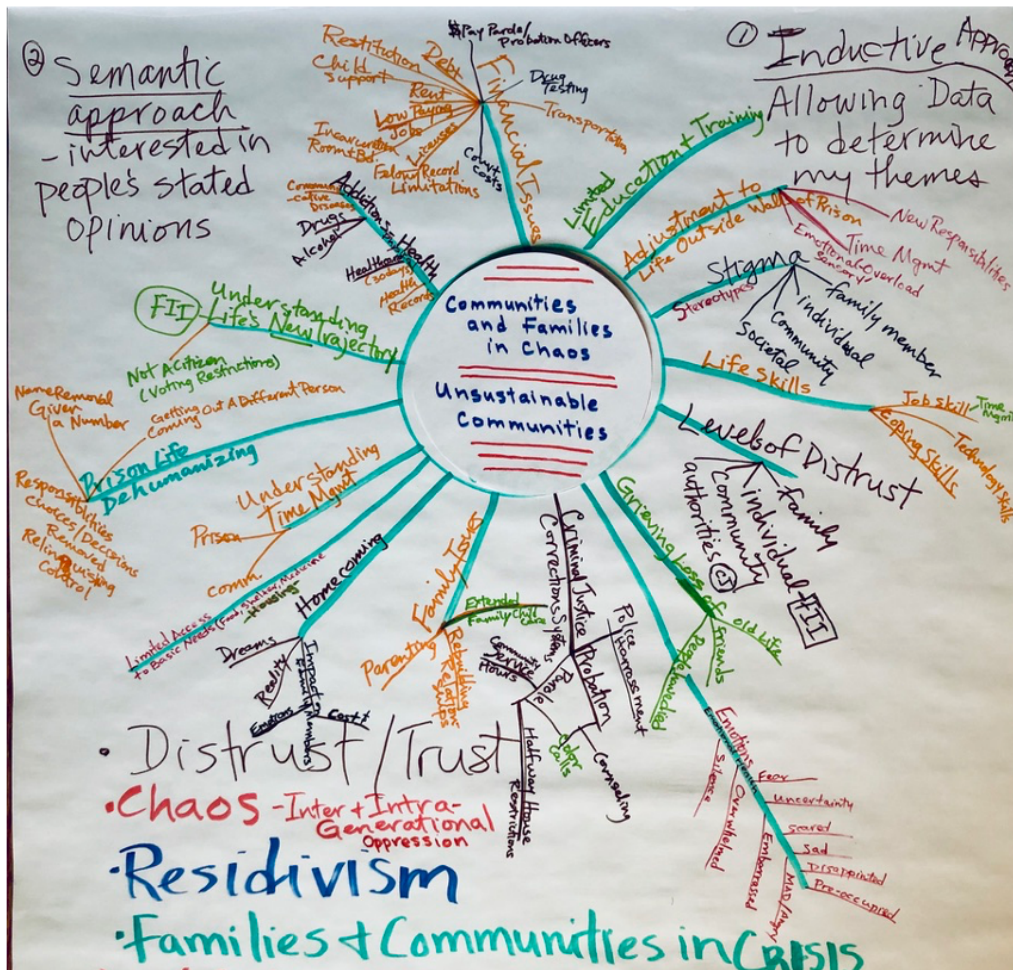 ② Semantic
approach
- interested in
people's stated
opinions
① Inductive
Allowing Data
to determine
my themes
Communities
and Families
in Chaos
Unsustainable
Communities
Financial Issues
$Pay Parole/
Probation Officers
Drug
Testing
Transportation
Court
costs
Debt
Restitution
Child
Support
Rent
Low Paying
Jobs
Licenses
Incarceration
Felony Record
Limitations
Limited
Education + Training
Adjustment to
Life Outside Walls of Prison
New Responsibilities
Time Mgmt
Emotional Overload
Sensory
Stigma
Stereotypes
family member
individual
Community
Societal
Life Skills
Job Skill
Time
Mgmt
Technology Skills
Coping Skills
Levels of Distrust
family
individual
Community
authorities CJ
FII
Grieving Loss of
old Life
Friends
Emotions
Emotional Health
Silence
Overwhelmed
Embarrassed
MAD/Angry
Fear
Uncertainty
scared
Sad
Disappointed
Pre-occupied
Criminal Justice
Corrections System
Probation
Police
Harrassment
Parole
Counseling
Community
Service
Hours
Color
Calls
Halfway House
Restrictions
Family Issues
Extended
Family Child
Care
Parenting
Rebuilding
Relation
ships
Homecoming
Dreams
Reality
Impact
Family Members
Emotions
Cost +
Limited Access
to Basic Needs (Food, Shelter, Medicine
-Housing
Understanding
Time Mgmt
Prison
Comm.
Prison Life
Dehumanizing
Name Removal
Given
a Number
Getting
Coming Out A Different Person
Responsibilities
Choices/Decisions
Removed
Relinquishing
Control
Understanding
Life's New Trajectory
FII
Not A Citizen
(Voting Restrictions)
Addictions
Health
Diseases
Drugs
Alcohol
Healthcare
(30 days)
Health
Records
• Distrust / Trust
• Chaos - Inter + Intra-
Generational
Oppression
• Residivism
• Families + Communities in CRISIS